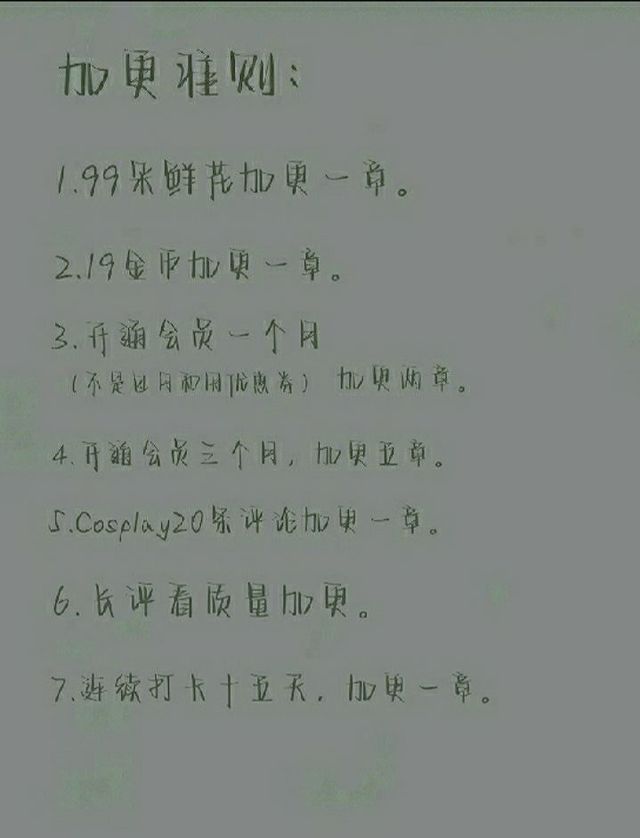 加更准则:
1.99朵鲜花加更一章。
2.19金币加更一章。
3.开通会员一个月
(不是包月和用优惠券) 加更两章。
4.开通会员三个月,加更五章。
5.Cosplay20条评论加更一章。
6.长评看质量加更。
7.连续打卡十五天,加更一章。